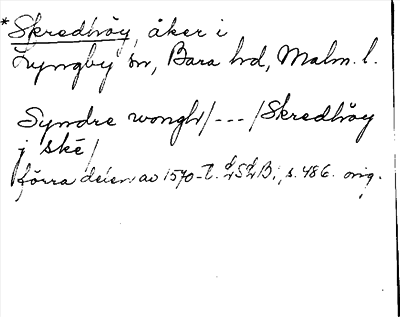 *Skredhöy, åker i
Lyngby sn, Bara hd, Malm. l.
Syndre wongh/---/Skredhöy
j skè/
förra delen av 1570-t. LSLB, s. 486. orig.